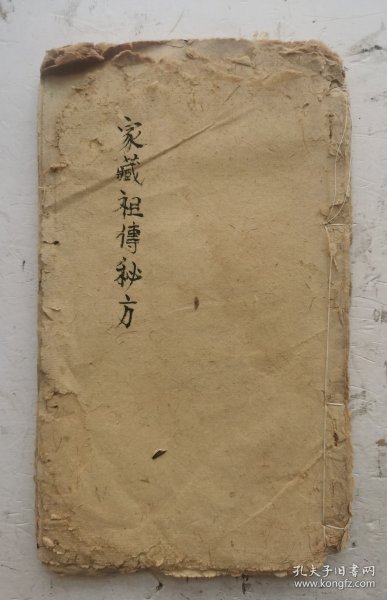 家藏祖傳秘方
孔夫子旧书网
www.kongfz.com